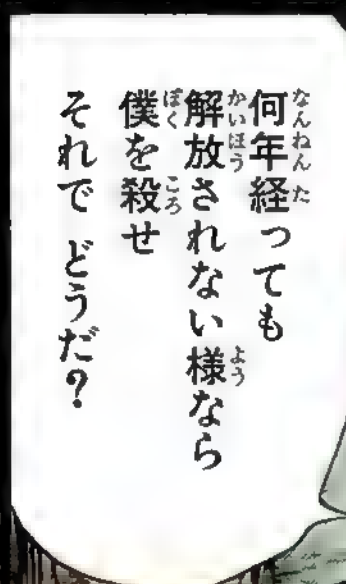 何年経っても
解放されない様なら
僕を殺せ
それで どうだ?